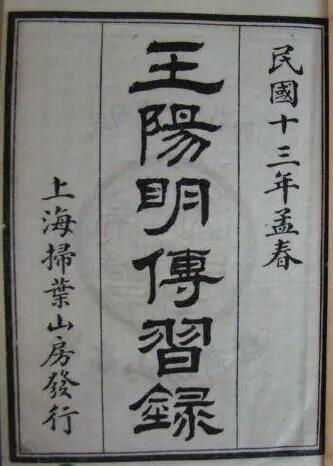 民國十三年孟春
王陽明傳習録
上海掃葉山房發行